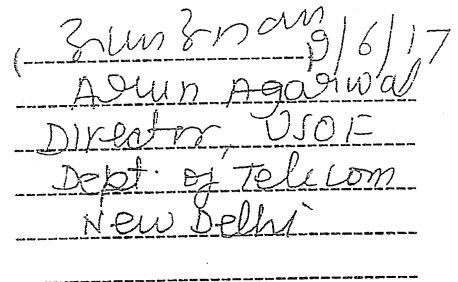 ( अरुण अग्रवाल 9/6/17
Arun Agarwal
Director, USOF
Dept. of Telecom
New Delhi